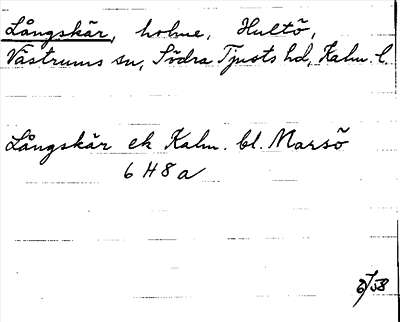 Långskär, holme, Hultö,
Västrums sn, Södra Tjusts hd, Kalm. l.
Långskär ek Kalm. bl. Marsö
6 H 8 a